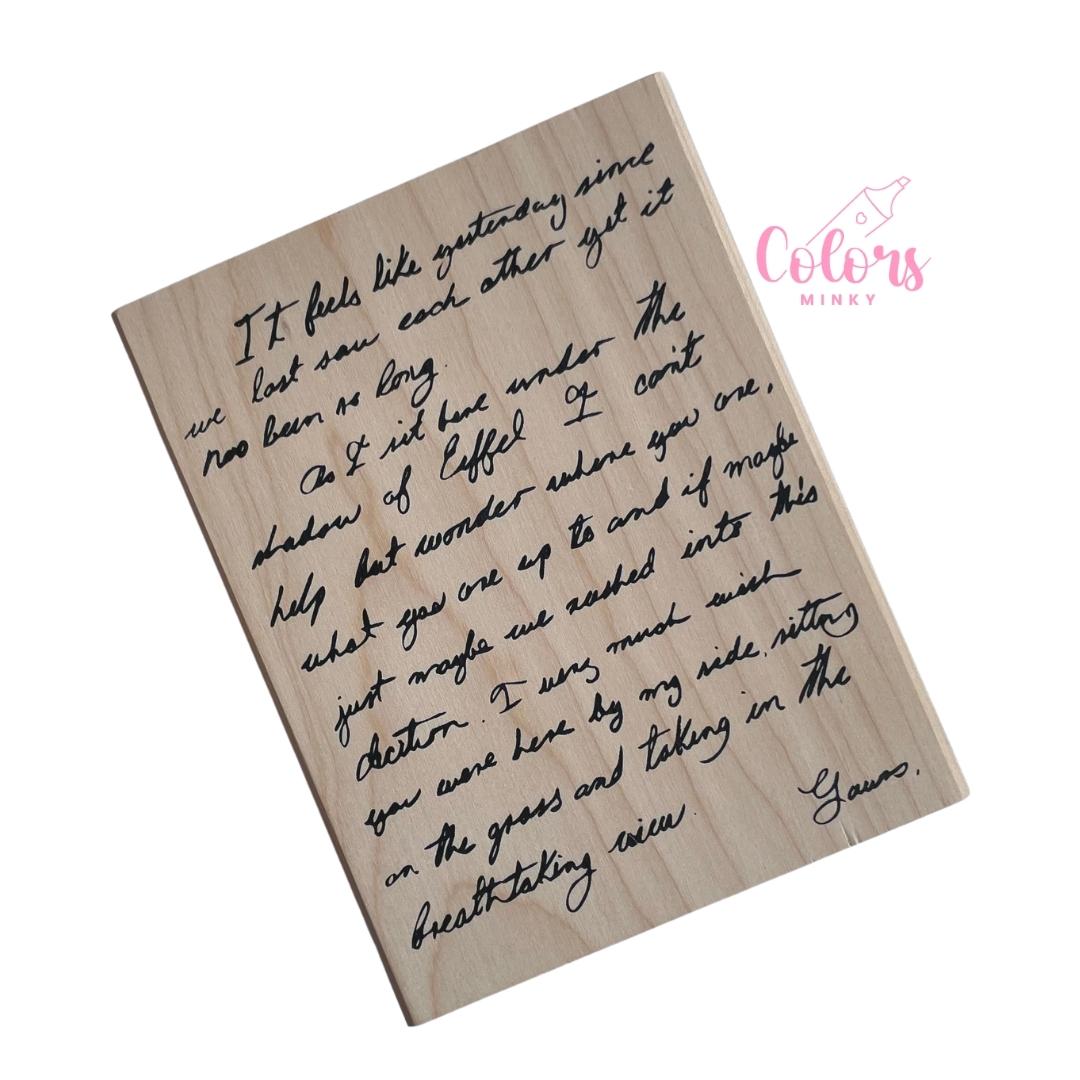 It feels like yesterday since
we last saw each other yet it
has been so long.
As I sit here under the
shadow of Eiffel I can't
help but wonder where you are,
what you are up to and if maybe
just maybe we rushed into this
decition. I very much wish
you were here by my side, sitting
on the grass and taking in the
breathtaking view.
Yours,
Colors
MINKY